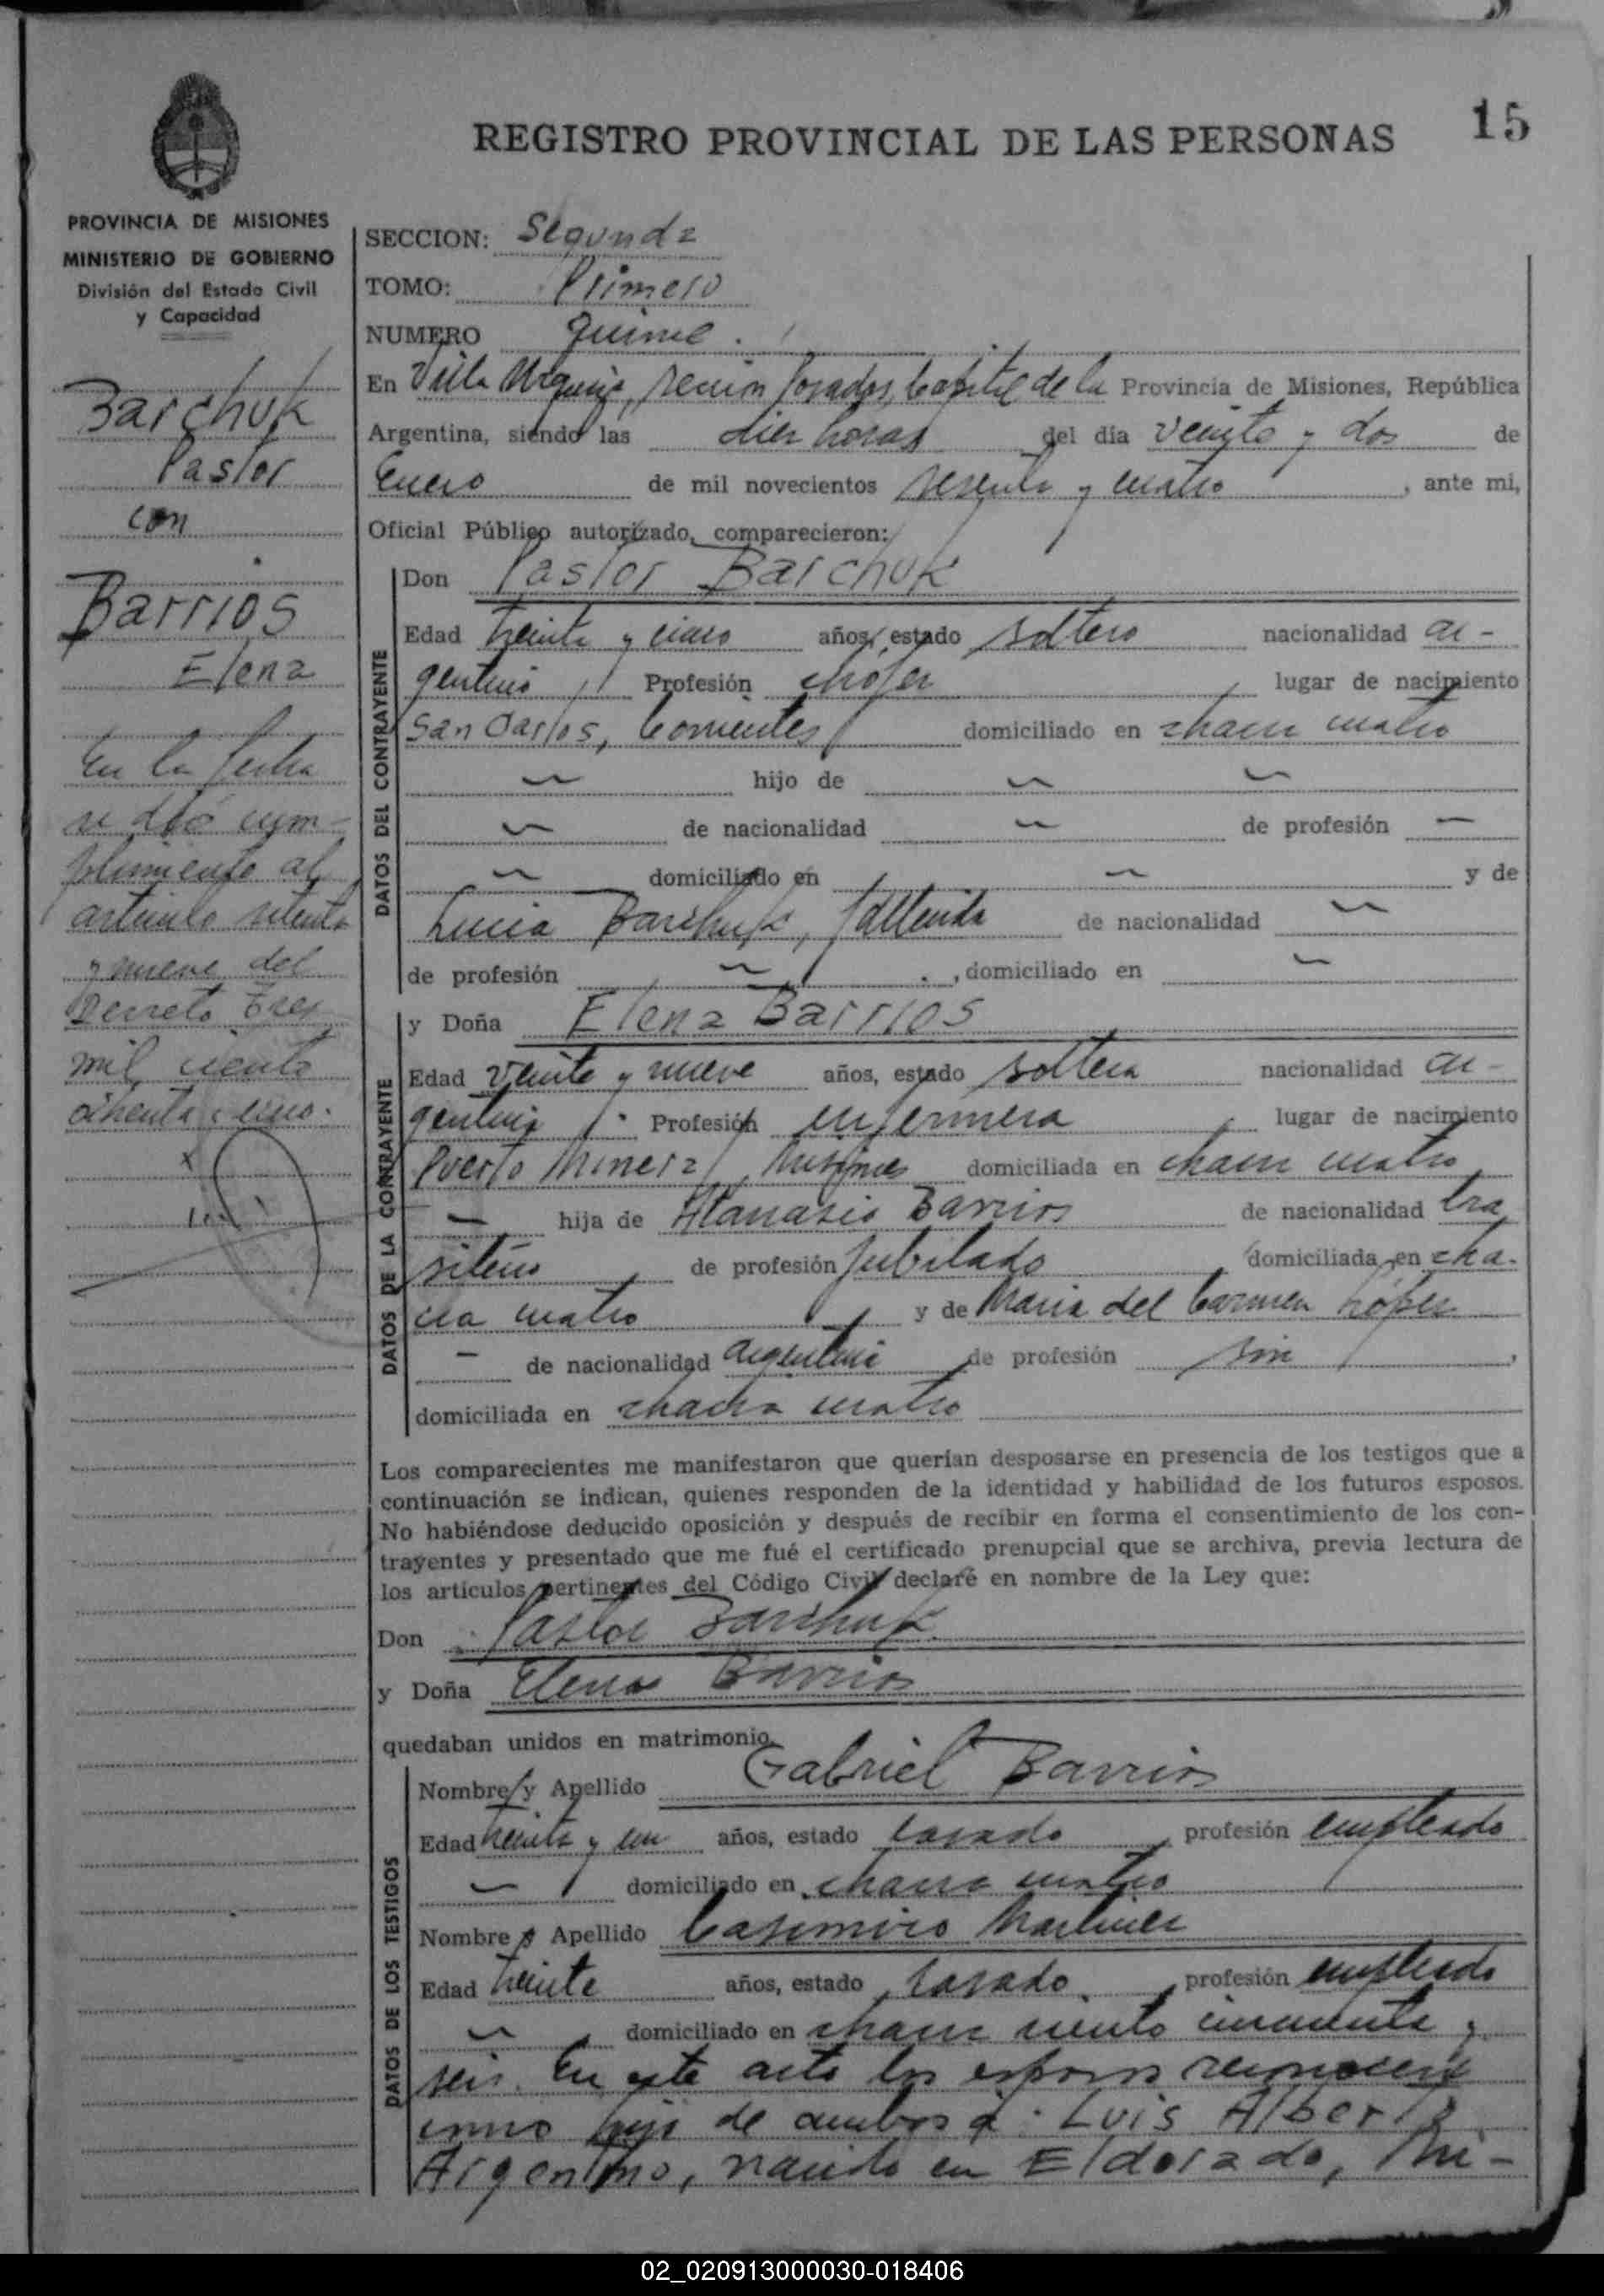 15
REGISTRO PROVINCIAL DE LAS PERSONAS
PROVINCIA DE MISIONES
MINISTERIO DE GOBIERNO
División del Estado Civil
y Capacidad
Barchuk
Pastor
con
Barrios
Elena
En la fecha
se dió cum-
plimiento al
artículo setenta
y nueve del
Decreto tres
mil ciento
ochenta y cinco.
SECCION: Segunda
TOMO: Primero
NUMERO Quince.
En Villa Urquiza, sección Posadas, Capital de la Provincia de Misiones, República
Argentina, siendo las diez horas del día veinte y dos de
Enero de mil novecientos sesenta y cuatro, ante mi,
Oficial Público autorizado, comparecieron:
DATOS DEL CONTRAYENTE
Don Pastor Barchuk
Edad treinta y cinco años, estado soltero nacionalidad ar-
gentino, Profesión chofer, lugar de nacimiento
San Carlos, Corrientes domiciliado en chacra cuatro
— hijo de — —
— de nacionalidad — de profesión —
— domiciliado en — y de
Lucia Barchuk, fallecida de nacionalidad —
de profesión — , domiciliado en —
DATOS DE LA CONTRAYENTE
y Doña Elena Barrios
Edad veinte y nueve años, estado soltera nacionalidad ar-
gentina, Profesión enfermera, lugar de nacimiento
Puerto Minera, Misiones domiciliada en chacra cuatro
— hija de Atanasio Barrios de nacionalidad bra
sileño, de profesión jubilado, domiciliada en cha-
cra cuatro, y de Maria del Carmen López
— de nacionalidad argentina de profesión sin,
domiciliada en chacra cuatro
Los comparecientes me manifestaron que querían desposarse en presencia de los testigos que a
continuación se indican, quienes responden de la identidad y habilidad de los futuros esposos.
No habiéndose deducido oposición y después de recibir en forma el consentimiento de los con-
trayentes y presentado que me fué el certificado prenupcial que se archiva, previa lectura de
los artículos pertinentes del Código Civil declaré en nombre de la Ley que:
Don Pastor Barchuk
y Doña Elena Barrios
quedaban unidos en matrimonio
DATOS DE LOS TESTIGOS
Nombre y Apellido Gabriel Barrios
Edad treinta y un años, estado casado, profesión empleado
— domiciliado en chacra cuatro
Nombre y Apellido Casimiro Martinez
Edad treinta años, estado casado, profesión empleado
—, domiciliado en chacra ciento cincuenta y
seis. En este acto los esposos reconocen
como hijo de ambos a: Luis Alberto
Argentino, nacido en Eldorado, Mi-
02_020913000030-018406